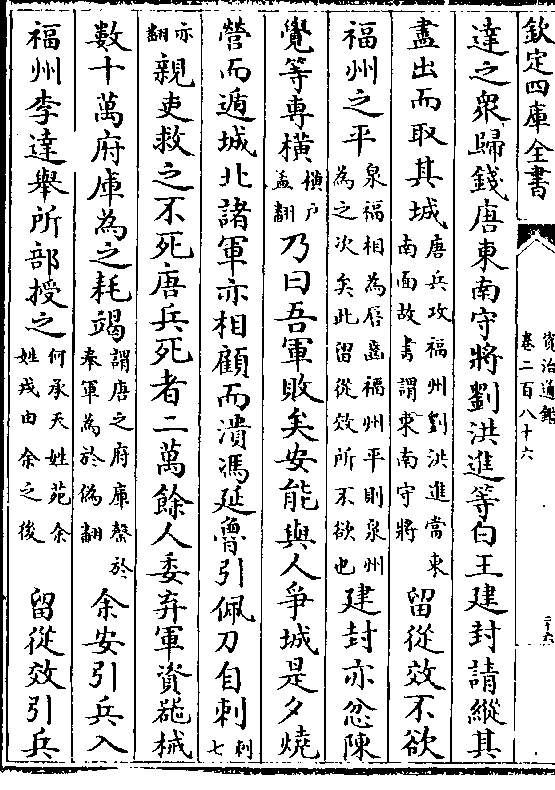 欽定四庫全書
資治通鑑
卷二百八十六
達之衆歸錢唐東南守將劉洪進等白王建封請縱其
盡出而取其城唐兵攻福州劉洪進當東
南面故書謂東南守將留從效不欲
福州之平泉福相為唇齒福州平則泉州
為之次矣此留從效所不欲也建封亦忿陳
覺等專橫橫户
孟翻乃曰吾軍敗矣安能與人爭城是夕燒
營而遁城北諸軍亦相顧而潰馮延魯引佩刀自刺刺
七
亦
翻親吏救之不死唐兵死者二萬餘人委弃軍資器械
數十萬府庫為之耗竭謂唐之府庫罄於
奉軍為於偽翻余安引兵入
福州李達舉所部授之何承天姓苑余
姓戎由余之後留從效引兵